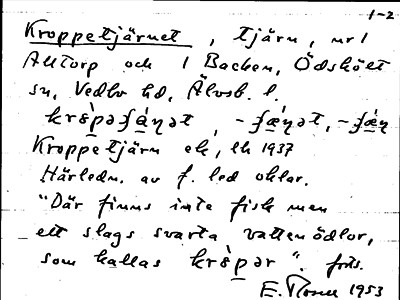 1-2
Kroppetjärnet, tjärn, nr 1
Alltorp och 1 Backen, Ödskölt
sn, Vedbo hd, Älvsb. l.
krɞ̀pəʃæ̀ɳət, -ʃæ̀ɳət, -ʃæ̀ɳ
Kroppetjärn ek, lk 1937
Härledn. av f. led oklar.
"Där finns inte fisk men
ett slags svarta vattenödlor,
som kallas krɞ̀pər". forts.
1953